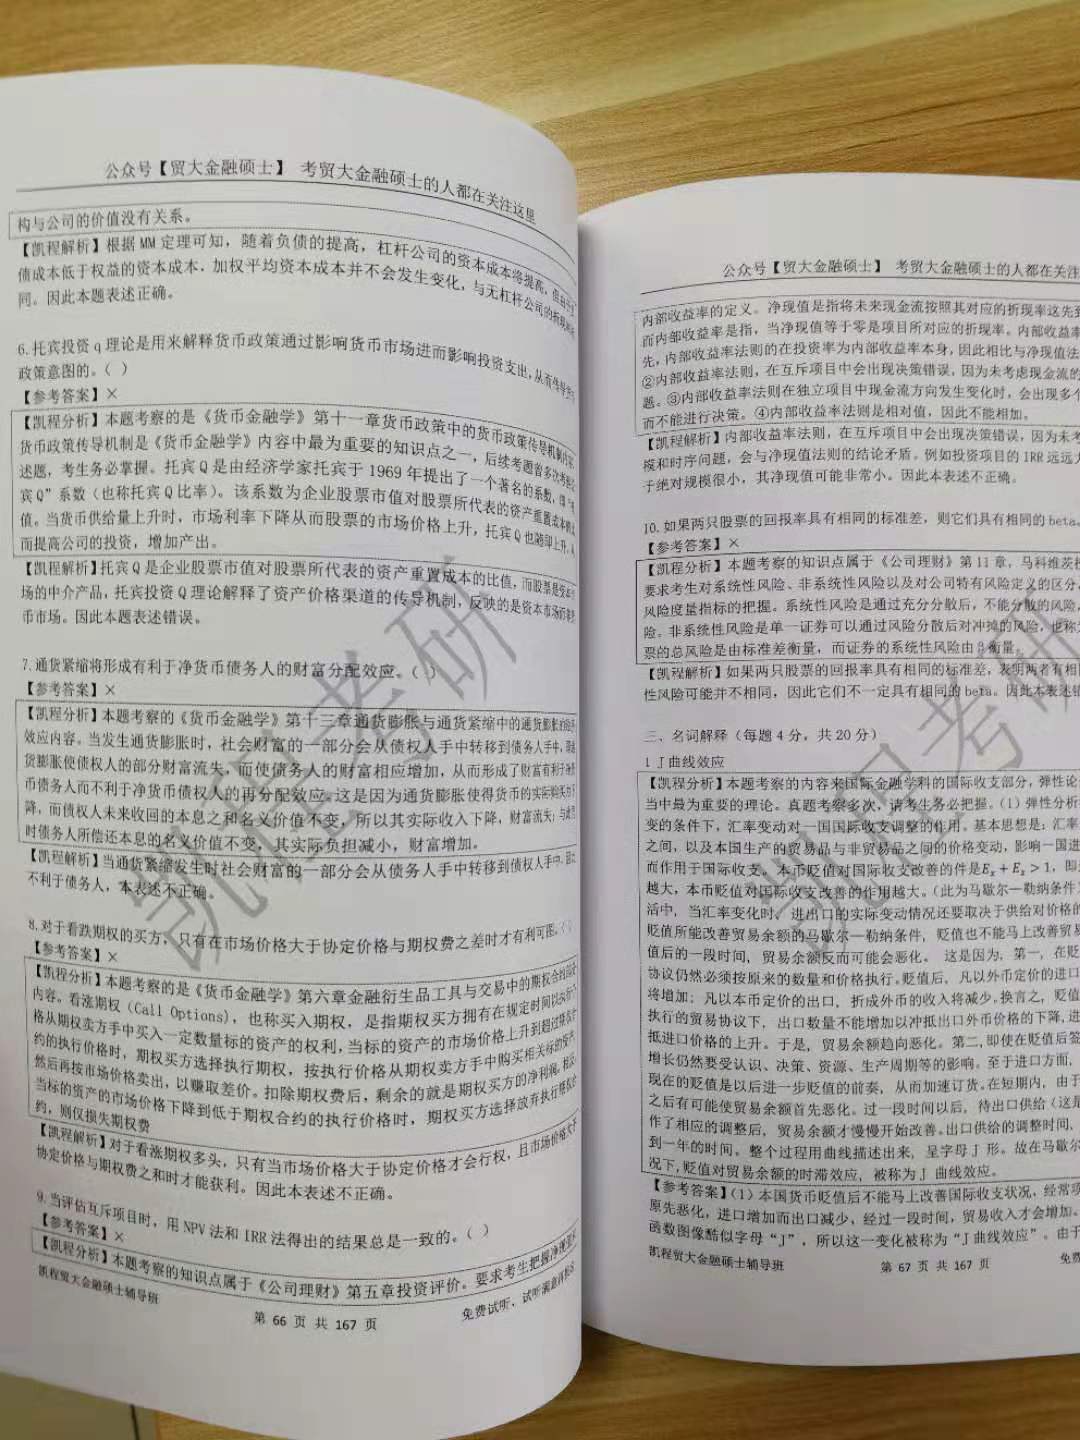 公众号【贸大金融硕士】 考贸大金融硕士的人都在关注这里
构与公司的价值没有关系。
【凯程解析】根据 MM 定理可知，随着负债的提高，杠杆公司的资本成本将提高，但由于
债成本低于权益的资本成本，加权平均资本成本并不会发生变化，与无杠杆公司的
同。因此本题表述正确。
6.托宾投资 q 理论是用来解释货币政策通过影响货币市场进而影响投资支出，从而
政策意图的。（ ）
【参考答案】×
【凯程分析】本题考察的是《货币金融学》第十一章货币政策中的货币政策传导机制
货币政策传导机制是《货币金融学》内容中最为重要的知识点之一，后续考题曾多次考
述题，考生务必掌握。托宾 Q 是由经济学家托宾于 1969 年提出了一个著名的系数，即
宾 Q”系数（也称托宾 Q 比率）。该系数为企业股票市值对股票所代表的资产重置成本
值。当货币供给量上升时，市场利率下降从而股票的市场价格上升，托宾 Q 也随即上升，从
而提高公司的投资，增加产出。
【凯程解析】托宾 Q 是企业股票市值对股票所代表的资产重置成本的比值，而股票是资本市
场的中介产品，托宾投资 Q 理论解释了资产价格渠道的传导机制，反映的是资本市场而
币市场。因此本题表述错误。
7.通货紧缩将形成有利于净货币债务人的财富分配效应。（ ）
【参考答案】×
【凯程分析】本题考察的《货币金融学》第十三章通货膨胀与通货紧缩中的通货膨胀的
效应内容。当发生通货膨胀时，社会财富的一部分会从债权人手中转移到债务人手中，
货膨胀使债权人的部分财富流失，而使债务人的财富相应增加，从而形成了财富有利于
币债务人而不利于净货币债权人的再分配效应。这是因为通货膨胀使得货币的实际购买力下
降，而债权人未来收回的本息之和名义价值不变，所以其实际收入下降，财富流失；与此
时债务人所偿还本息的名义价值不变，其实际负担减小，财富增加。
【凯程解析】当通货紧缩发生时社会财富的一部分会从债务人手中转移到债权人手中，
不利于债务人，本表述不正确。
8.对于看跌期权的买方，只有在市场价格大于协定价格与期权费之差时才有利可图。（ ）
【参考答案】×
【凯程分析】本题考察的是《货币金融学》第六章金融衍生品工具与交易中的期权合约
内容。看涨期权（Call Options），也称买入期权，是指期权买方拥有在规定时间以
格从期权卖方手中买入一定数量标的资产的权利，当标的资产的市场价格上升到超过
约的执行价格时，期权买方选择执行期权，按执行价格从期权卖方手中购买相关标的资产，
然后再按市场价格卖出，以赚取差价。扣除期权费后，剩余的就是期权买方的净利润。相反，
当标的资产的市场价格下降到低于期权合约的执行价格时，期权买方选择放弃执行期权
约，则仅损失期权费
【凯程解析】对于看涨期权多头，只有当市场价格大于协定价格才会行权，且市场价格大于
协定价格与期权费之和时才能获利。因此本表述不正确。
9.当评估互斥项目时，用 NPV 法和 IRR 法得出的结果总是一致的。（ ）
【参考答案】×
【凯程分析】本题考察的知识点属于《公司理财》第五章投资评价。要求考生把握净现值
凯程贸大金融硕士辅导班 第 66 页 共 167 页 免费试听、试听满意再报名
公众号【贸大金融硕士】 考贸大金融硕士的人都在关注
内部收益率的定义。净现值是指将未来现金流按照其对应的折现率这先到
而内部收益率是指，当净现值等于零是项目所对应的折现率。内部收益率
先，内部收益率法则的在投资率为内部收益率本身，因此相比与净现值法
②内部收益率法则，在互斥项目中会出现决策错误，因为未考虑现金流的
题。③内部收益率法则在独立项目中现金流方向发生变化时，会出现多个
而不能进行决策。④内部收益率法则是相对值，因此不能相加。
【凯程解析】内部收益率法则，在互斥项目中会出现决策错误，因为未考
模和时序问题，会与净现值法则的结论矛盾。例如投资项目的 IRR 远远大
于绝对规模很小，其净现值可能非常小。因此本表述不正确。
10.如果两只股票的回报率具有相同的标准差，则它们具有相同的 beta。
【参考答案】×
【凯程分析】本题考察的知识点属于《公司理财》第 11 章，马科维茨
要求考生对系统性风险、非系统性风险以及对公司特有风险定义的区分
风险度量指标的把握。系统性风险是通过充分分散后，不能分散的风险
险。非系统性风险是单一证券可以通过风险分散后对冲掉的风险，也称
票的总风险是由标准差衡量，而证券的系统性风险由 β 衡量。
【凯程解析】如果两只股票的回报率具有相同的标准差，表明两者有相
性风险可能并不相同，因此它们不一定具有相同的 beta。因此本表述错
三、名词解释（每题 4 分，共 20 分）
1 J 曲线效应
【凯程分析】本题考察的内容来国际金融学科的国际收支部分，弹性论
当中最为重要的理论。真题考察多次，请考生务必把握。（1）弹性分析
变的条件下，汇率变动对一国国际收支调整的作用。基本思想是：汇率
之间，以及本国生产的贸易品与非贸易品之间的价格变动，影响一国进
而作用于国际收支。本币贬值对国际收支改善的件是Eₓ + Eₓ > 1，即
越大，本币贬值对国际收支改善的作用越大。（此为马歇尔—勒纳条件
活中，当汇率变化时，进出口的实际变动情况还要取决于供给对价格的
贬值所能改善贸易余额的马歇尔—勒纳条件，贬值也不能马上改善贸易
值后的一段时间，贸易余额反而可能会恶化。 这是因为，第一，在贬
协议仍然必须按原来的数量和价格执行。贬值后，凡以外币定价的进口
将增加；凡以本币定价的出口，折成外币的收入将减少。换言之，贬值
执行的贸易协议下，出口数量不能增加以冲抵出口外币价格的下降，进
抵进口价格的上升。于是，贸易余额趋向恶化。第二，即使在贬值后签
增长仍然要受认识、决策、资源、生产周期等的影响。至于进口方面，
现在的贬值是以后进一步贬值的前奏，从而加速订货。在短期内，由于
之后有可能使贸易余额首先恶化。过一段时间以后，待出口供给（这是
作了相应的调整后，贸易余额才慢慢开始改善。出口供给的调整时间，
到一年的时间。整个过程用曲线描述出来，呈字母 J 形。故在马歇尔
况下，贬值对贸易余额的时滞效应，被称为 J 曲线效应。
【参考答案】（1）本国货币贬值后不能马上改善国际收支状况，经常项
原先恶化，进口增加而出口减少，经过一段时间，贸易收入才会增加。
函数图像酷似字母“J”，所以这一变化被称为“J 曲线效应”。由于
凯程贸大金融硕士辅导班 第 67 页 共 167 页 免费
凯程考研
凯程考研